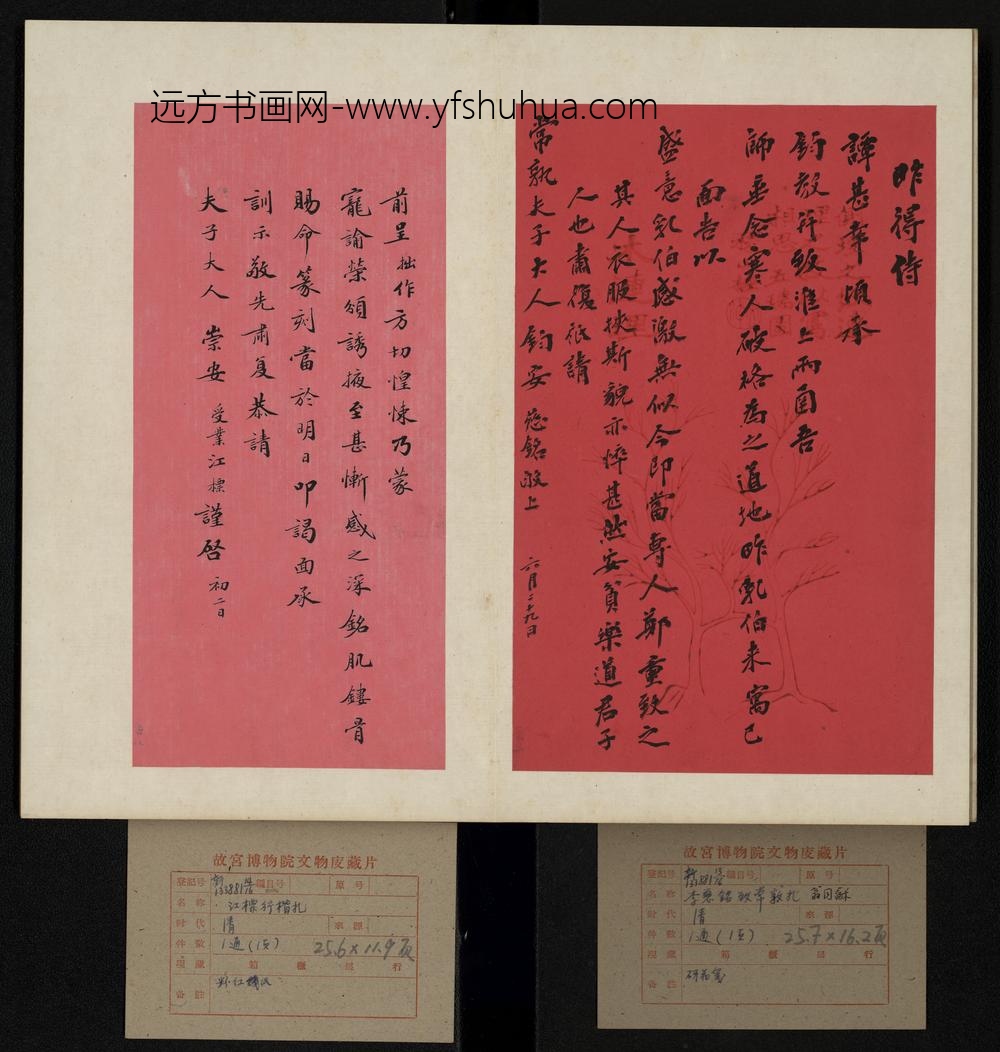 远方书画网-www.yfshuhua.com
昨得侍
譚甚幸頃承
鈞教并致淮上兩函吾
師垂念寒人破格為之道地昨乳伯來寓已
面告以
盛意乳伯感激無似今即當專人鄭重致之
其人衣服挾斯貌亦悴甚然安貧樂道君子
人也肅復祗請
常孰夫子大人鈞安 慈銘敬上
六月二十九日
前呈拙作方切惶悚乃蒙
寵諭榮頒誘掖至甚慚感之深銘肌鏤骨
賜命篆刻當於明日叩謁面承
訓示敬先肅复恭請
夫子大人 崇安 受業江標謹啓 初二日
故宮博物院文物庋藏片
登記号 新133881 編目号 原号
名称 江標行楷札
时代 清 來源
件数 1通(1頁) 25.6×11.9
現藏 箱 櫃 屉 行
备註
故宮博物院文物庋藏片
登記号 編目号 原号
名称 李慈銘致常熟札 翁同龢
时代 清 來源
件数 1通(1頁) 25.7×16.2
現藏 箱 櫃 屉 行
备註